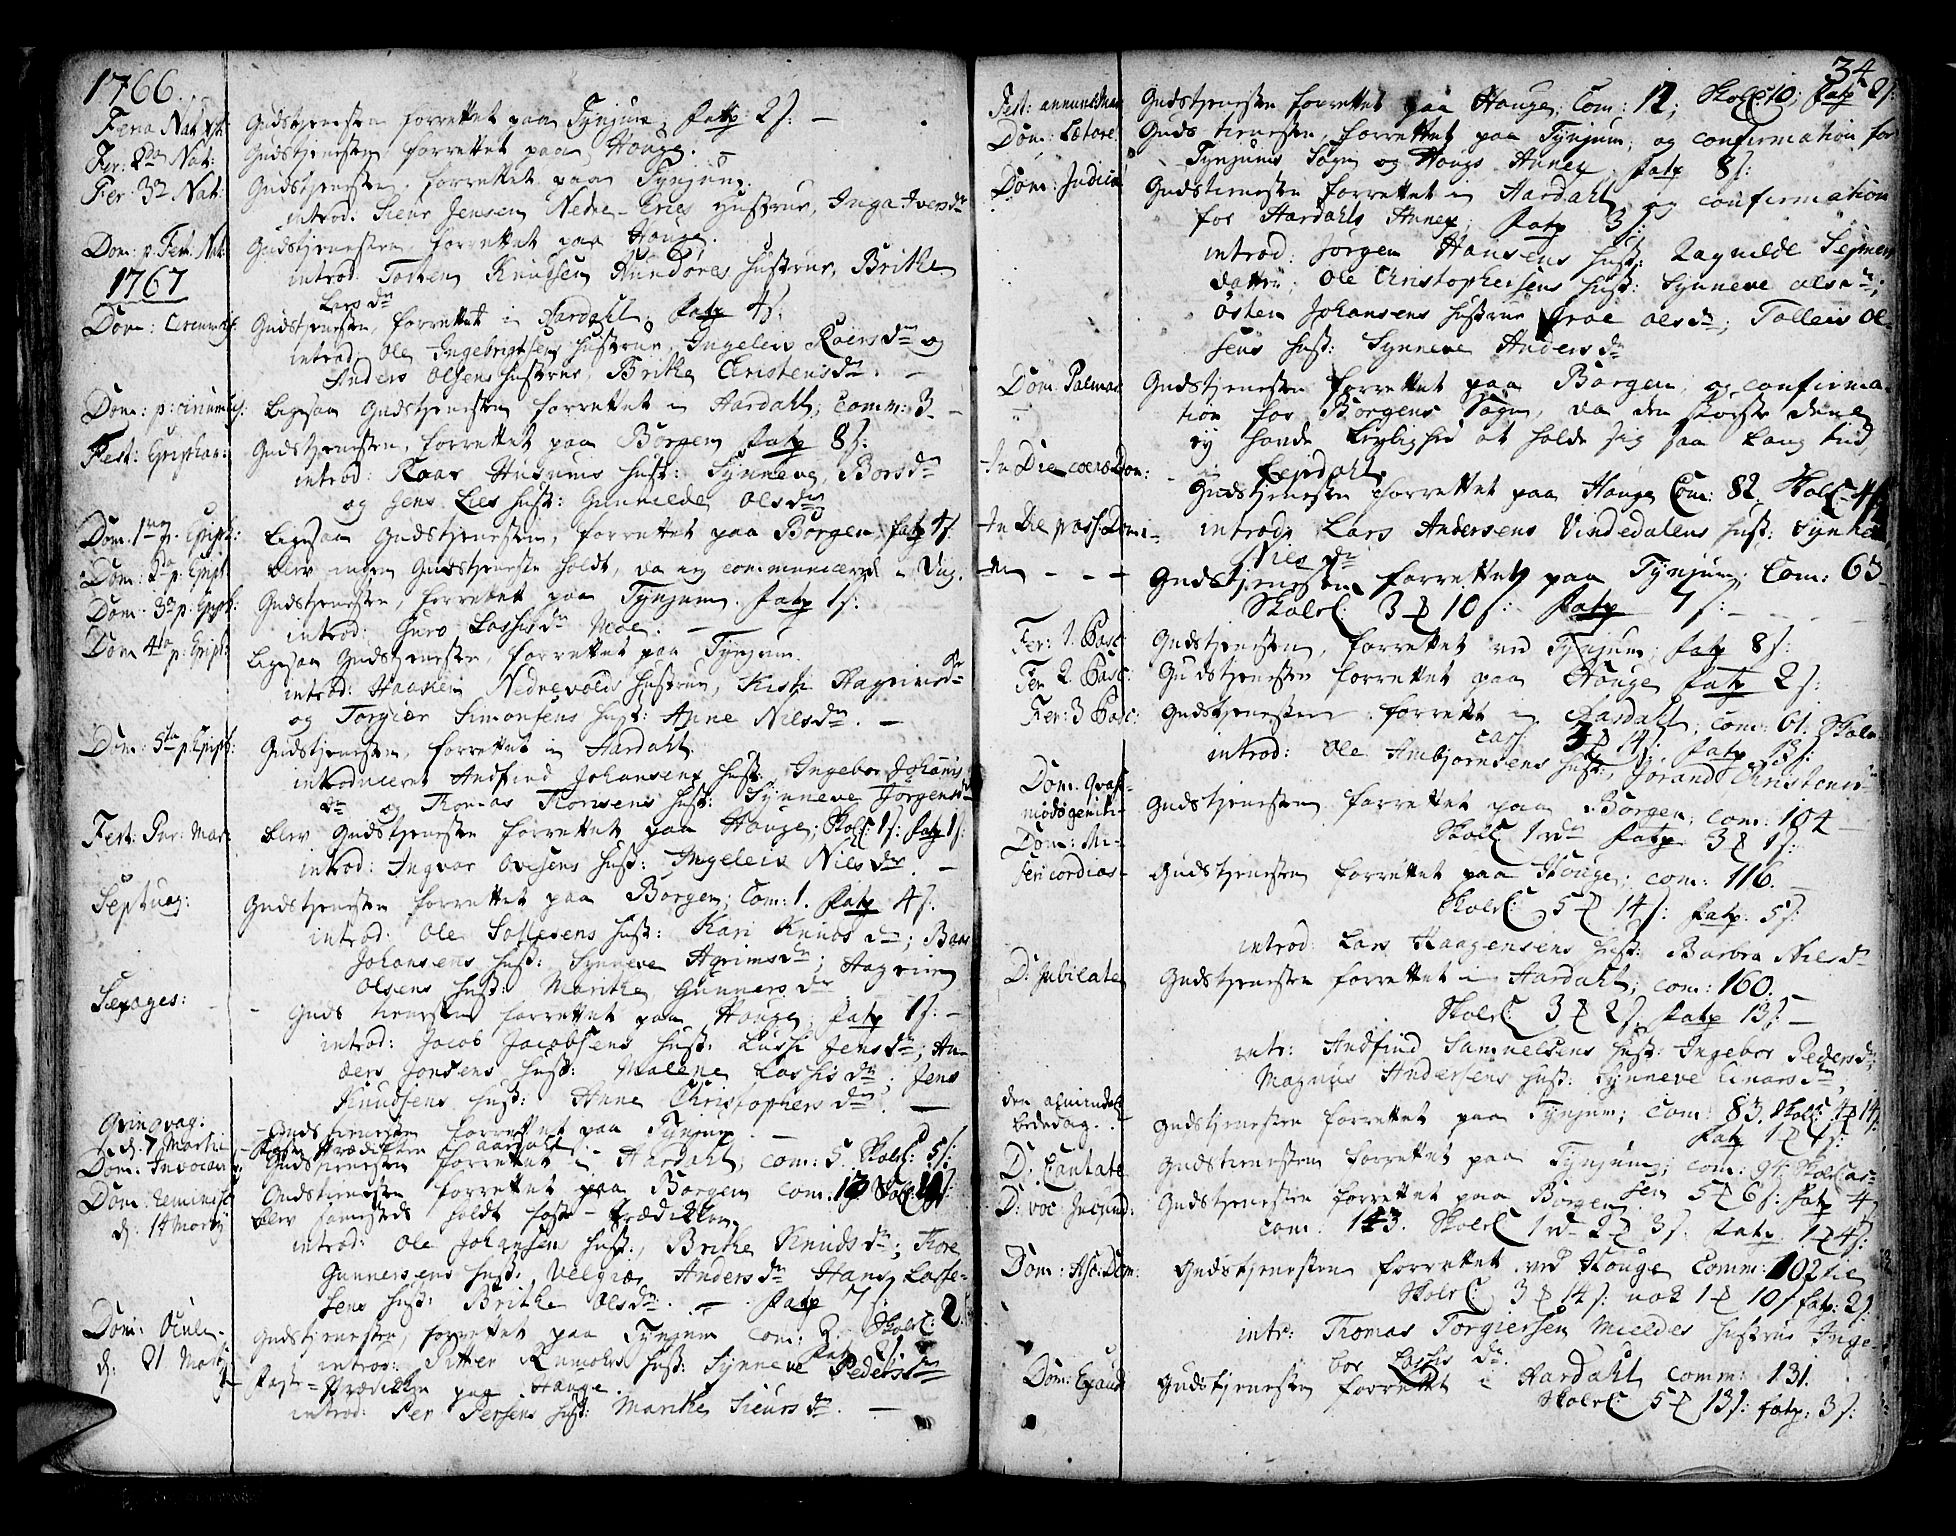 1766.
Feria Nat. Xti: Gudstjenesten forrettet paa Tynjum; fatp: 2 s: —
Fer: 2da Nat: Gudstjenesten forrettet paa Houge. —
Fer: 3a Nat: Gudstjenesten forrettet paa Tynjum.
introd. Siur Jensen Nedre-Eries Hustrue, Inga Iversdr
Dom: p. Fest. Nat: Gudstjenesten forrettet paa Houge.
introd: Torsten Knudsen Hustrue, Brithe
Larsdr
1767
Dom: Circumcis: Gudstjenesten forrettet i Aardahl; fatp 4 s:
introd, Ole Ingebrigtsens Hustrue, Ingeleiv Roersdr og
Anders Olsens Hustrue, Brithe Christensdr. —
Dom: p: circumcis: Ligesaa Gudstjenesten forrettet i Aardahl; Comm: 3. —
Fest: Epiphan: Gudstjenesten, forrettet paa Borgen fatp 8 s:
introd: Roar Husums Hust: Synneve, Borsdr
og Jens Lies Hust: Gunnilde Olsdr
Dom. 1ma p. Epiph: Ligesaa Gudstjenesten, forrettet paa Borgen fatp 4 s.
Dom: 2da p: Epiph: blev ingen Gudstjeneste holdt, da ey communicered i Dag.
Dom: 3a p: Epiph: Gudstjenesten, forrettet paa Tynjum. fatp 1 s:
introd: Guro Lassisdr Moe. —
Dom 4ta p: Epiph: Ligesaa Gudstjenesten, forrettet paa Tynjum.
introd: Haaken Nedrevolds Hustrue, Kisti Hagrimsdr
og Torgier Simonsens Hust: Anne Nilsdr. —
Dom: 5ta p. Epiph: Gudstjenesten, forrettet i Aardahl
introduceret Andfind Johansens Hust: Ingebor Johannis
dr og Thomas Thorsens Hust: Synneve Jørgensdr
Fest: Pur: Mar: blev Gudstjenesten forrettet paa Houge; Skolc: 1 s: fatp 1 s:
introd: Ingvar Ovesens Hust: Ingeleiv Nilsdr. —
Septuag: Gudstjenesten forrettet paa Borgen; Com: 1. fatp 4 s.
introd: Ole Hust: Kari Knudsdr; Baar
Johansens Hust: Synneve Agrimsdr; Hagrim
Olsens Hust: Marithe Gunnersdr
Sexages: - - Guds tienesten forrettet paa Houge; fatp 1 s: —
introd: Jacob Jacobsens Hust: Lussi Jensdr; An-
ders Jonsens Hust: Malene Lassisdr; Jens
Knudsens Hust: Anne Christophersdr. —
Qvinqvag: - Guds tienesten forrettet paa Tynjum. —
d. 7 Martii - Faste Prædiken i Aardahl.
Dom: Invocavit: Gudstienesten forrettet i Aardahl; com: 5. Skolc: 5 s:
Dom: Reminisc: Gudstienesten forrettet paa Borgen com: 13 Skolc:
d: 14 Martij blev samesteds holdt faste-Prædiken
introd: Ole Johansens Hust:, Brithe Knudsdr; Thore
Gunnersens Hust: Velgiær Andersdr Hans Lasse-
sens Hust: Brithe Olsdr. — . fatp 7 s:
Dom: Oculi - Gudstjenesten, forrettet paa Tynjum com: 2. Skolc: 2.
d: 21 Martij introd: Pitter Rumohrs Hust: Synneve Pedersdr
Faste-Prædiken paa Houge.
introd: Per Persens Hust: Marithe Siursdr. —
34
Fest: annunc Mar Gudstjenesten forrettet paa Houge; Com: 12; Skolc: 10; fatp 2 s:
Dom: Lætare Guds tienesten, forrettet paa Tynjum; og confirmation for
Tynjums Sogn og Hougs Annex, fatp 8 s:
Dom: Judica Gudstienesten forrettet i Aardahl og confirmation
for Aardahls Annex; fatp 3 s:
introd: Jorgen Hansens Hust: Ragnilde Sejmens
datter; Ole Christophersens Hust: Synneve Olsdr;
Østen Johansens Hustrue Groe Olsdr; Tolleiv Ol-
sens Hust: Synneve Andersdr
Dom: Palmar Gudstjenesten forrettet paa Borgen, og confirma-
tion for Borgens Sogn, da den største Deel
ey havde Leylighed at holde sig saa Lang tid
Lejrdahl.
In Die coenæ Dom: Gudstjenesten forrettet paa Houge Com: 82. Skolc: 4
In Die pass: Domi- introd: Lars Andersens Vindedalens Hust: Synneve
Nilsdr
ni - - - Gudstjenesten forrettet paa Tynjum; Com: 63.
Skolc: 3 ₰ 10 s: fatp 7 s: —
Fer: 1. Pasc: Gudstjenesten, forrettet ved Tynjum; fatp 8 s:
Fer 2. Pasc: Gudstjenesten forrettet paa Houge fatp 2 s:
Fer: 3 Pasc: Gudstjenesten forrettet i Aardahl; com: 61. Skole
cass 3 ₰ 14 s: fatp. 13 s:
introd: Ole Ambjørnsens Hust:, Jorand Christensdr
Dom: Qvasi-
modogeniti - Gudstjenesten forrettet paa Borgen; com: 104 —
Skolc 1 rdr fatp 3 ₰ 1 s:
Dom: Mi-
sericordias - Gudstjenesten forrettet paa Houge; com: 116. —
Skolc: 5 ₰ 14 s: fatp: 5 s:
introd: Lars Haagensens Hust: Barbra Nilsdr
D. Jubilate Gudstjenesten forrettet i Aardahl; com: 160. —
Skolc: 3 ₰ 2 s. fatp 13 s: —
intr: Andfind Samuelsens Hust: Ingebor Pedersdr;
Magnus Andersens Hust: Synneve Einarsdr.
den almindel:
bededag. . - Gudstjenesten forrettet paa Tynjum; com: 83. Skolc: 4 ₰ 14 s:
fatp 1 ₰ 1 s:
D. Cantate Gudstienesten forrettet paa Tynjum; com: 94. Skolc cas-
sen 5 ₰ 6 s: fatp 4
D: voc: Jucund: Gudstjenesten forrettet paa Borgen
com: 143. Skolc 1 rd - 2 ₰ 3 s. fatp. 1 ₰ 4 s:
Dom: Asc: Dom: Gudstjenesten forrettet ved Houge Comm: 102
Skolc: 3 ₰ 14 s: nok 1 ₰ 10 s fatp: 2 s.
intr: Thomas Torgiersen Mieldes Hustrue Inge-
bor Lassisdr.
Dom: Exaud Gudstjenesten forrettet i Aardahl comm: 131.
Skolc: 5 ₰ 13 s: fatp: 3 s: